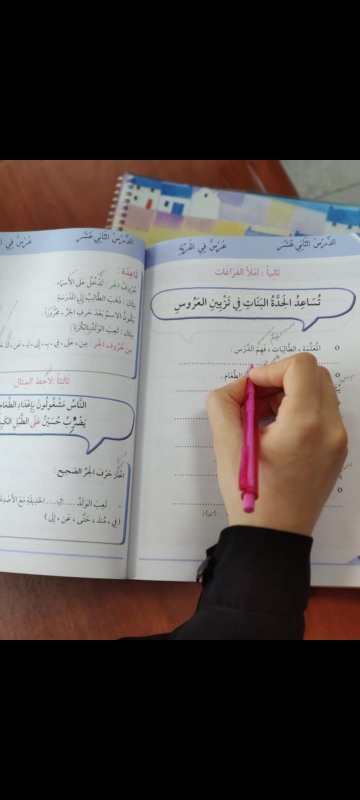 الدَّرْسُ الثَّانِي عَشَر
عُرْسٌ فِي القَرْيَةِ
ثانياً : امْلأ الفَرَاغَات
تُسَاعِدُ الجَدَّةُ البَنَاتِ فِي تَزْيِينِ العَرُوسِ
المُعَلِّمَة ، الطَّالِبَات ، فَهِمَ الدَّرْس .
الطَّعَام .
الدَّرْسُ الثَّانِي عَشَر
عُرْسٌ فِي
قَاعِدَة :
حُرُوفُ الجَر : تَدْخُلُ عَلَى الأَسْمَاء
مِثَال : ذَهَبَ الطَّالِبُ إِلَى المَدْرَسَةِ
يَكُونُ الاسْمُ بَعْدَ حَرْفِ الجَرِّ ، مَجْرُورًا
مِثَال : لَعِبَ الوَلَدُ بِالكُرَةِ .
مِنْ حُرُوفِ الجَر : مِن ، عَلَى ، فِي ، بِـ ، إِلَى ، لِـ ، عَن
ثالثاً : لاحظ المِثَال
النَّاسُ مَشْغُولُونَ بِإِعْدَادِ الطَّعَام
يَضْرِبُ حُسَيْنٌ عَلَى الطَّبْلِ
اخْتَرْ حَرْفَ الجَرِّ الصَّحِيح :
لَعِبَ الوَلَدُ ..... الحَدِيقَةِ مَعَ
( فِي ، مُنْذُ ، حَتَّى ، عَن ، إِلَى )